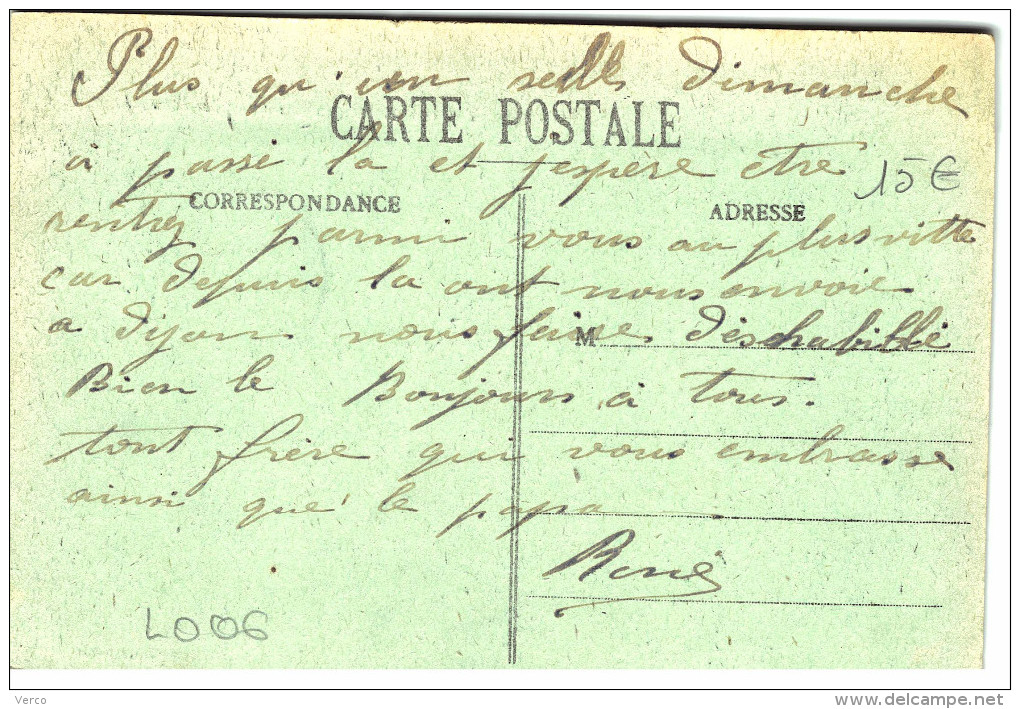 Plus qu'un seul dimanche
CARTE POSTALE
à passé la et j'espère etre
15€
CORRESPONDANCE
ADRESSE
rentrez parmi vous au plus vitte
car depuis la ont nous envoie
a dijon nous faire déschabillé
M
Bien le Bonjours à tous.
tont frère qui vous embrasse
ainsi que le papa
René
L006
Verco
www.delcampe.net